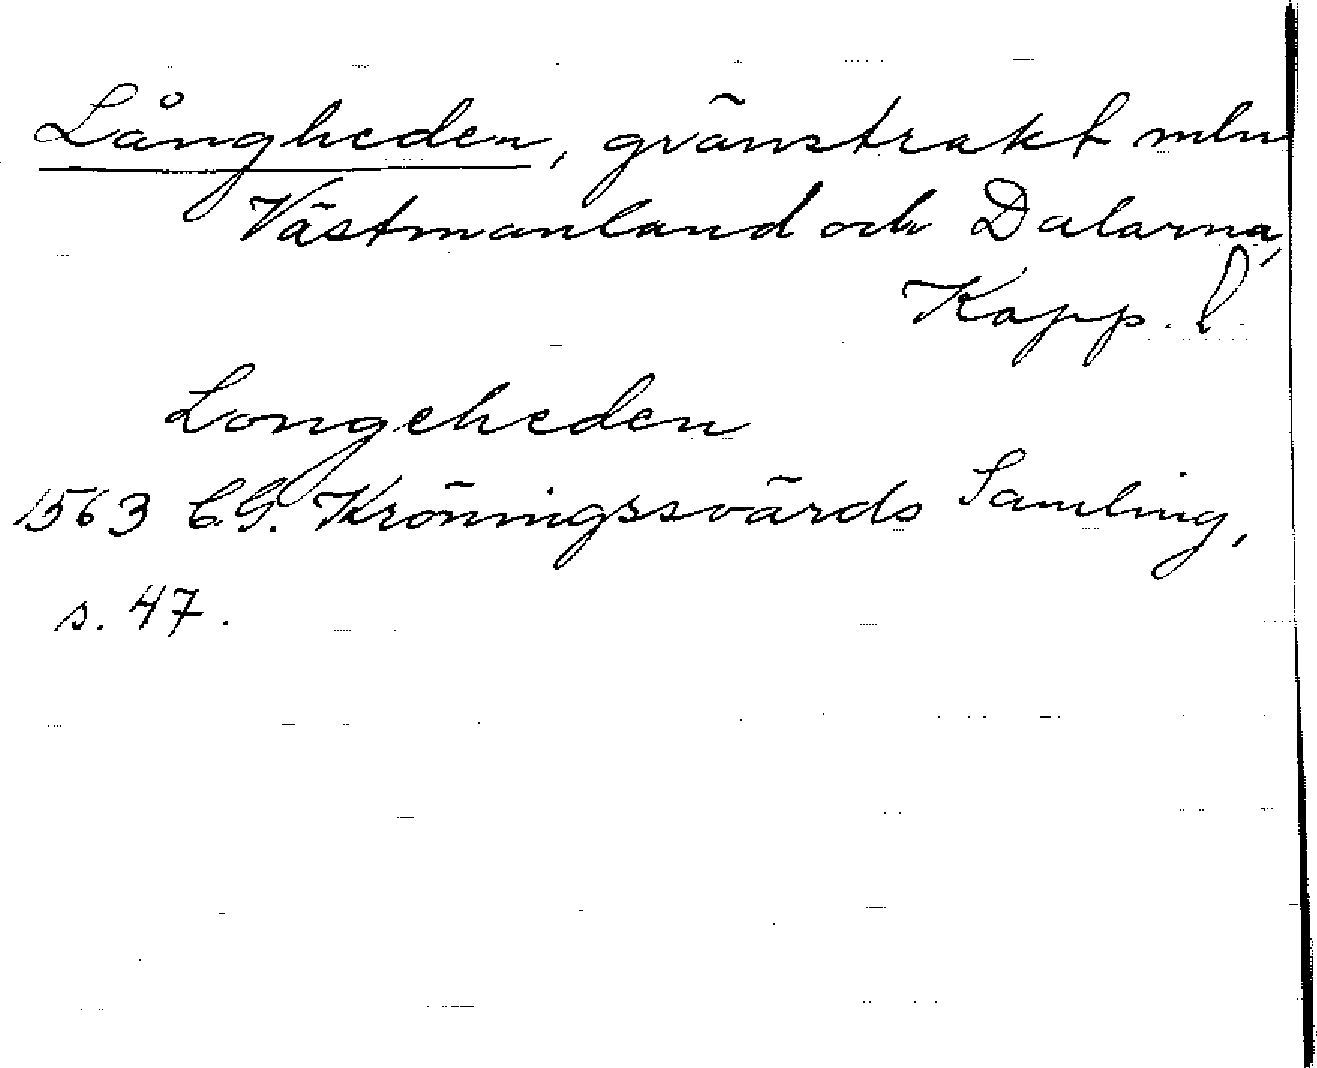 Långheden, gränstrakt mln
Västmanland och Dalarna,
Kopp. l.
Longeheden
1563 C.G. Kröningssvärds Samling,
s. 47.